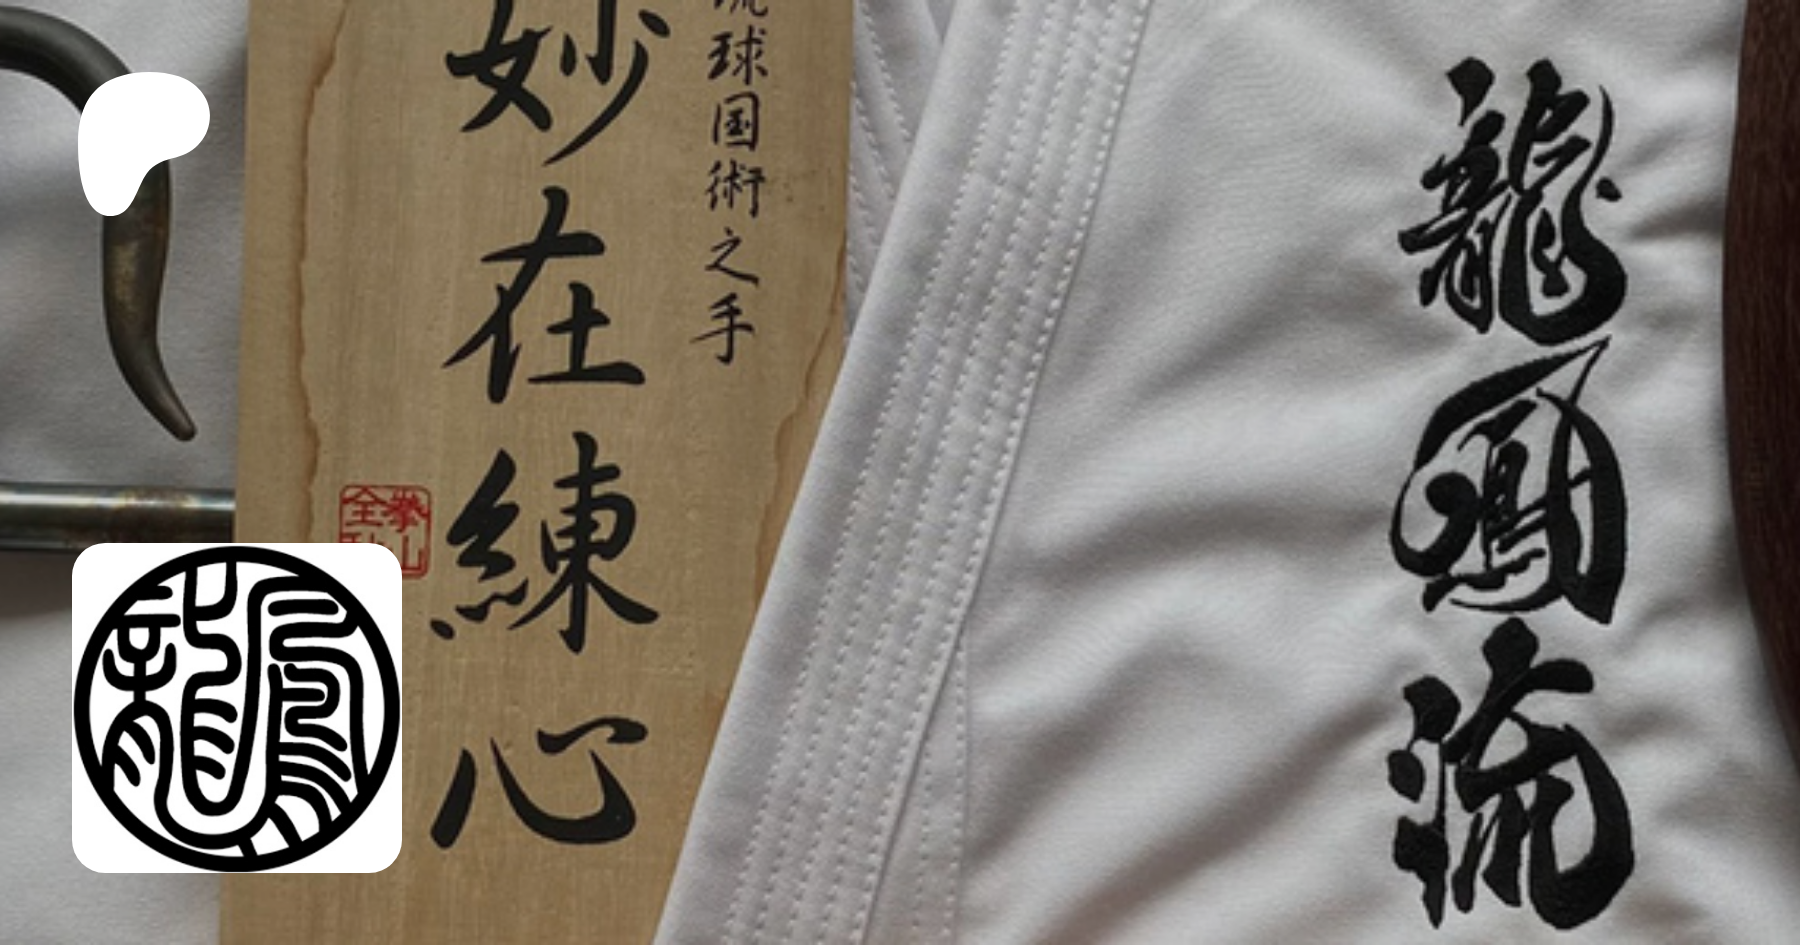 琉球国術之手
妙在練心
拳山
全
龍鳳流
龍鳳